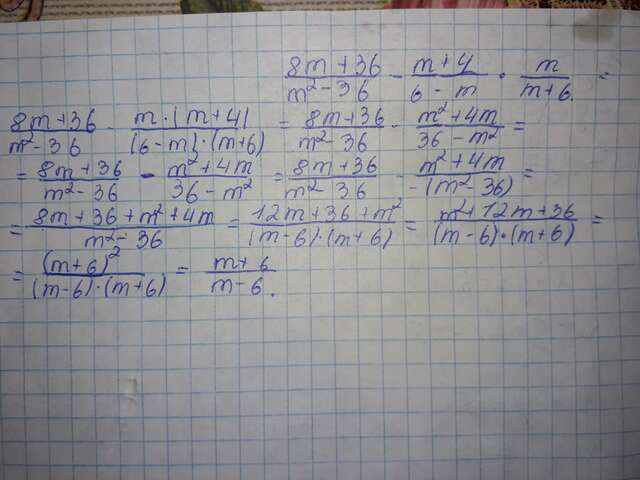 (8m+36)/(m²-36) - (m+4)/(6-m) · m/(m+6) =
(8m+36)/(m²-36) - (m·(m+4))/((6-m)·(m+6)) = (8m+36)/(m²-36) - (m²+4m)/(36-m²) =
= (8m+36)/(m²-36) - (m²+4m)/(36-m²) = (8m+36)/(m²-36) - (m²+4m)/(-(m²-36)) =
= (8m+36+m²+4m)/(m²-36) = (12m+36+m²)/((m-6)·(m+6)) = (m²+12m+36)/((m-6)·(m+6)) =
= (m+6)²/((m-6)·(m+6)) = (m+6)/(m-6).